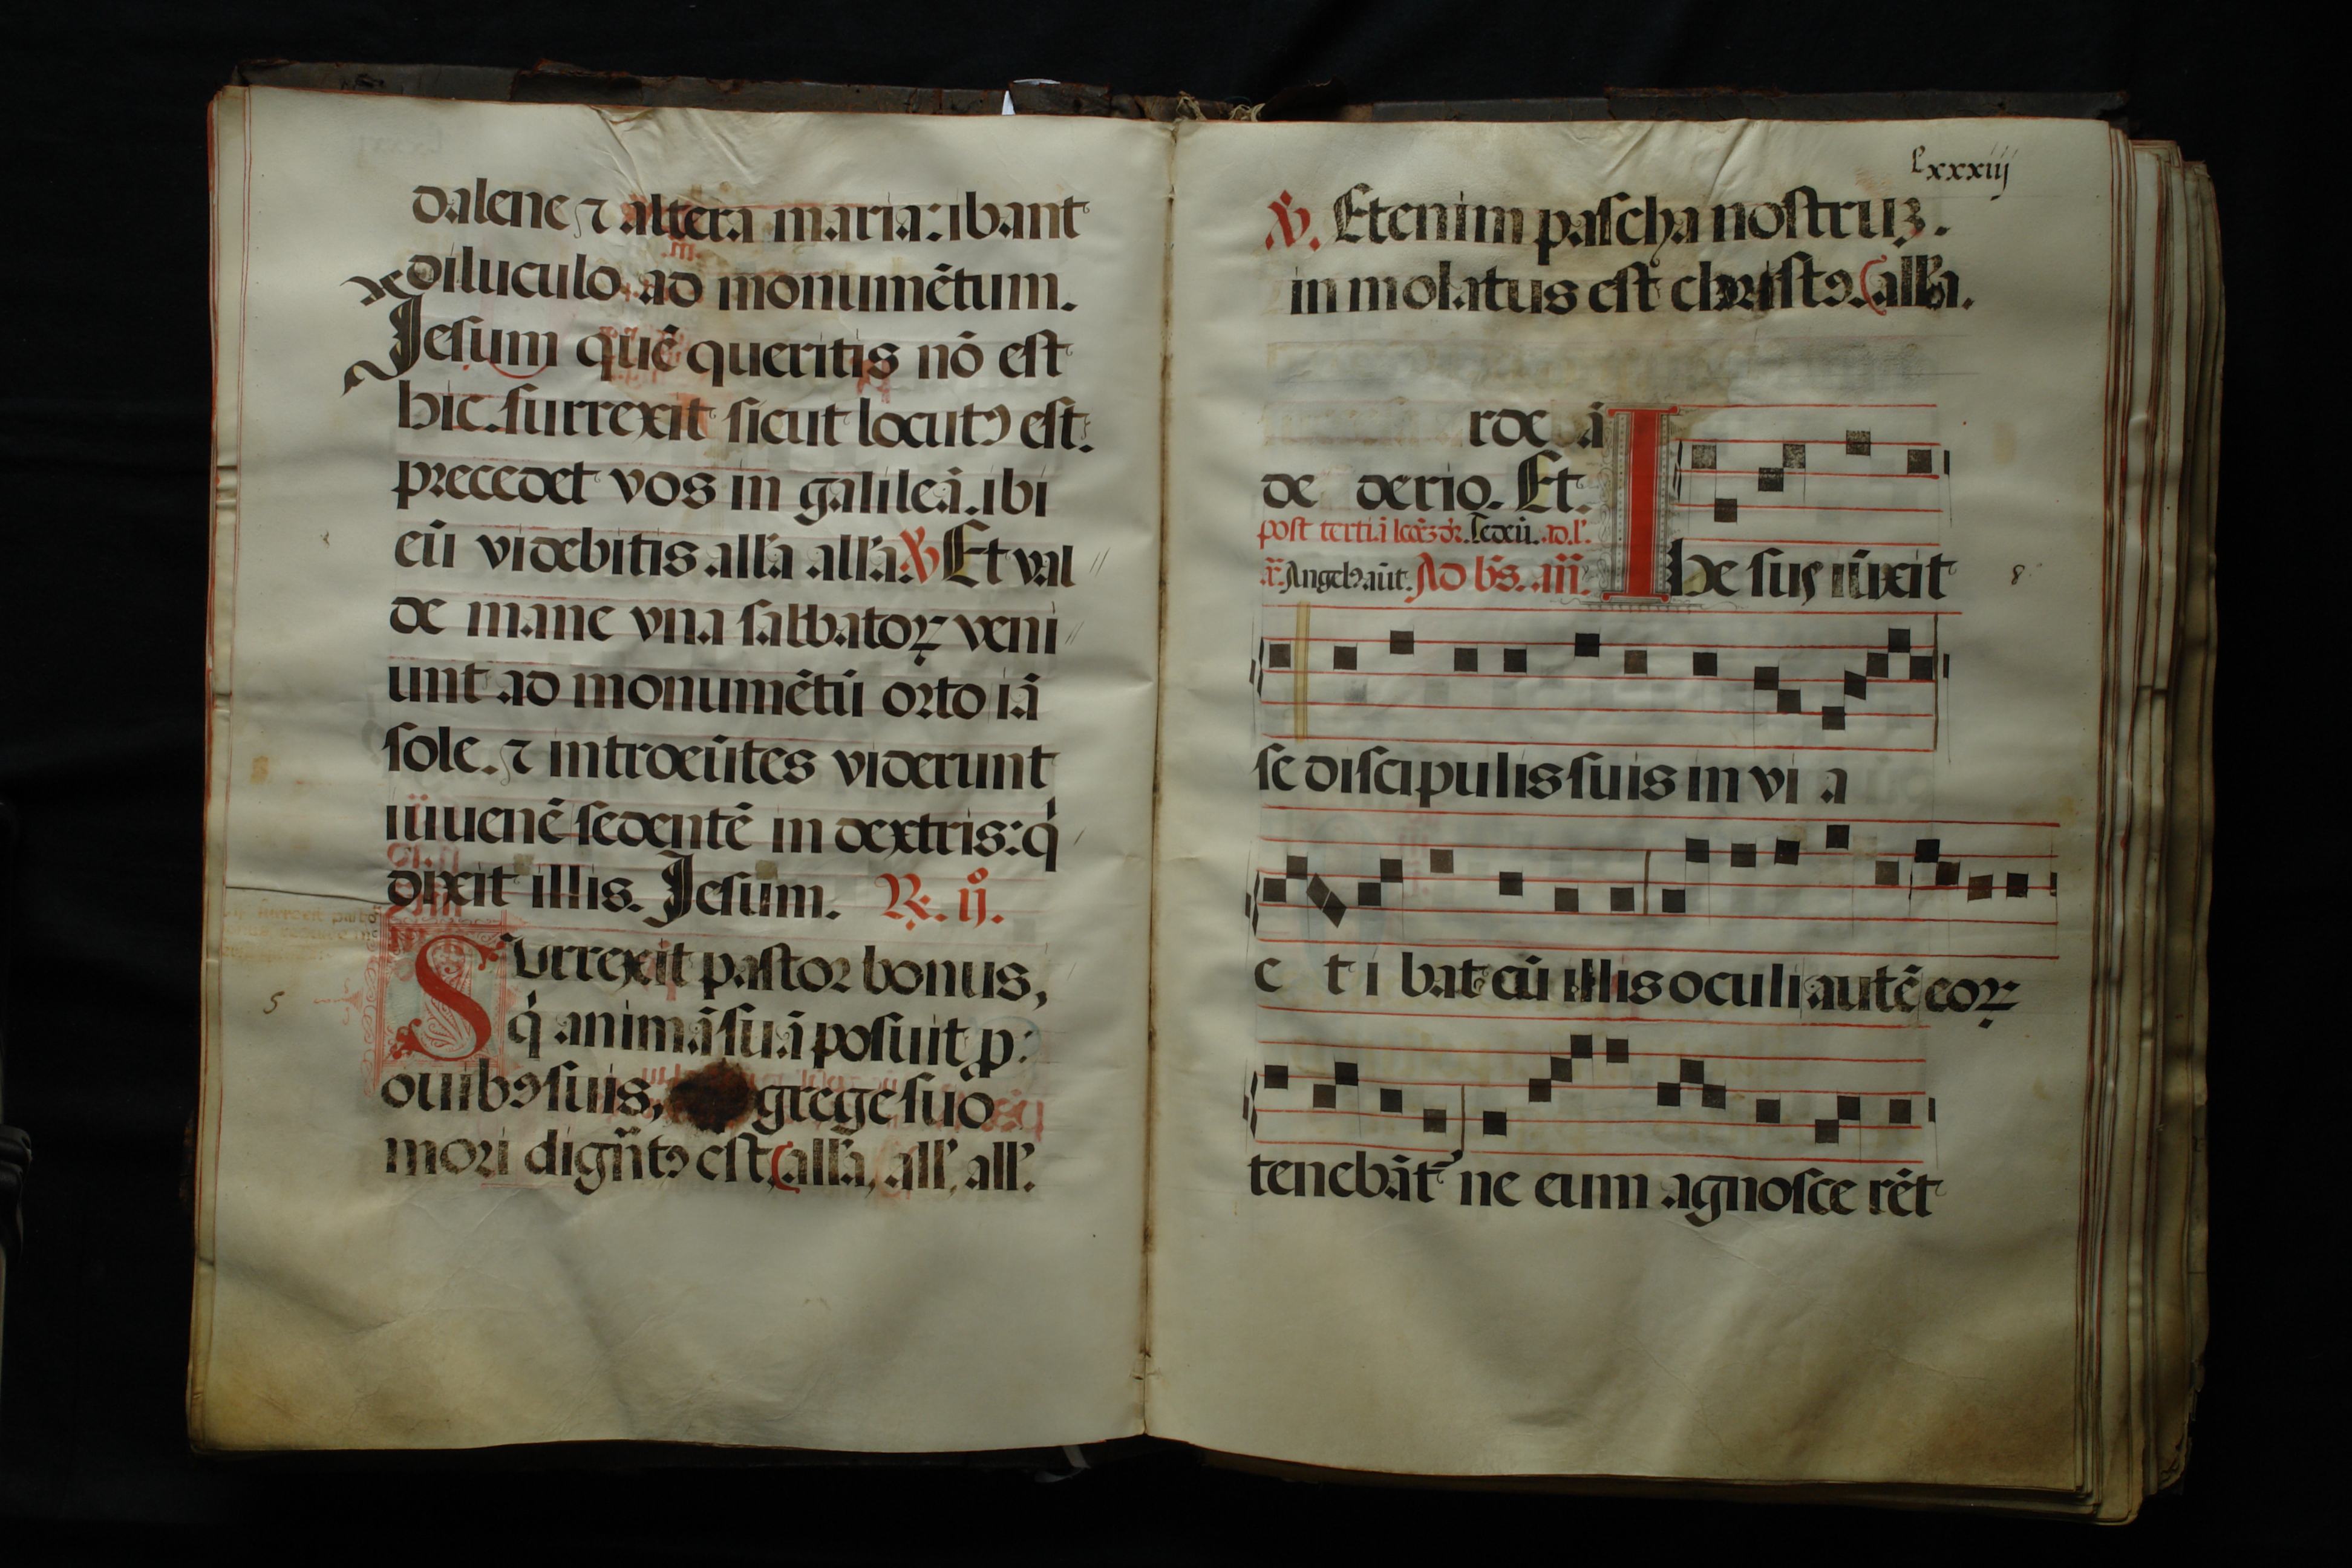 dalene ⁊ altera maria: ibant
diluculo ad monumẽtum.
Jesum quẽ queritis nõ est
hic. surrexit sicut locutꝯ est.
precedet vos in galileã. ibi
eũ videbitis alla alla. ℣ Et val
de mane vna sabbatoꝝ veni
unt ad monumẽtũ orto iã
sole. ⁊ introeũtes viderunt
iuuenẽ sedentẽ in dextris: q̇
dixit illis. Jesum. ℟. ij.
Surrexit pastor bonus,
q̇ animã suã posuit p:
ouibꝯ suis, grege suo
mori dignatꝯ est, alla, all' all'.
5
Lxxxiij
℣. Etenim pascha nostruꝫ.
inmolatus est christꝯ. alla.
de derio. Et.
Ad bs. añ.
Ihe sus iũxit
8
se discipulis suis in vi a
e t i bat cũ illis oculi autẽ eoꝝ
tenebãt ne eum agnosce rẽt